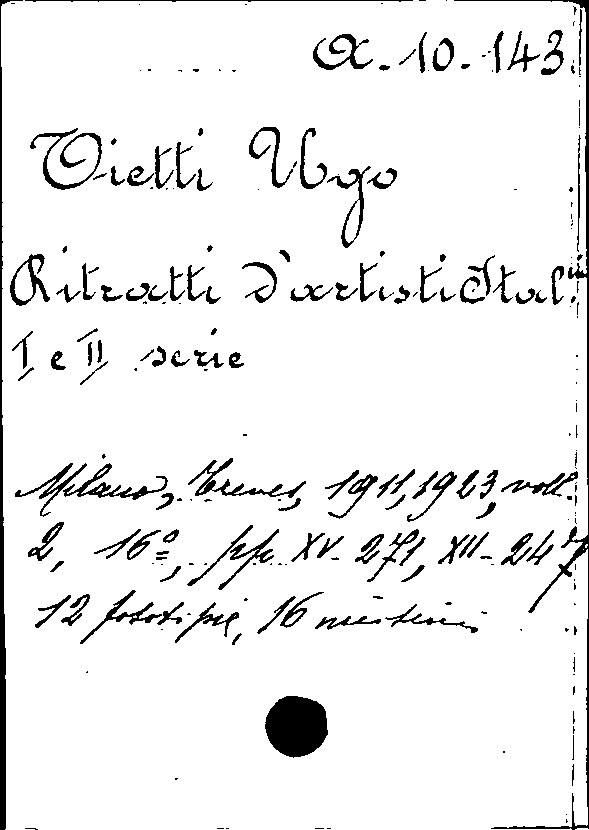 A. 10. 143.
Ojetti Ugo
Ritratti d'artisti Ital.ni
I e II serie
Milano, Treves, 1911, 1923, voll.
2, 16º, pp. XV-271, XII-247
12 fototipie, 16